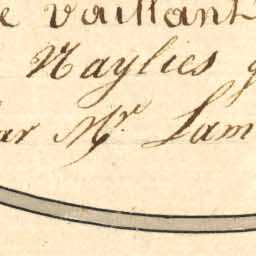 e vaillant
Naylies g
ar Mr. Lam